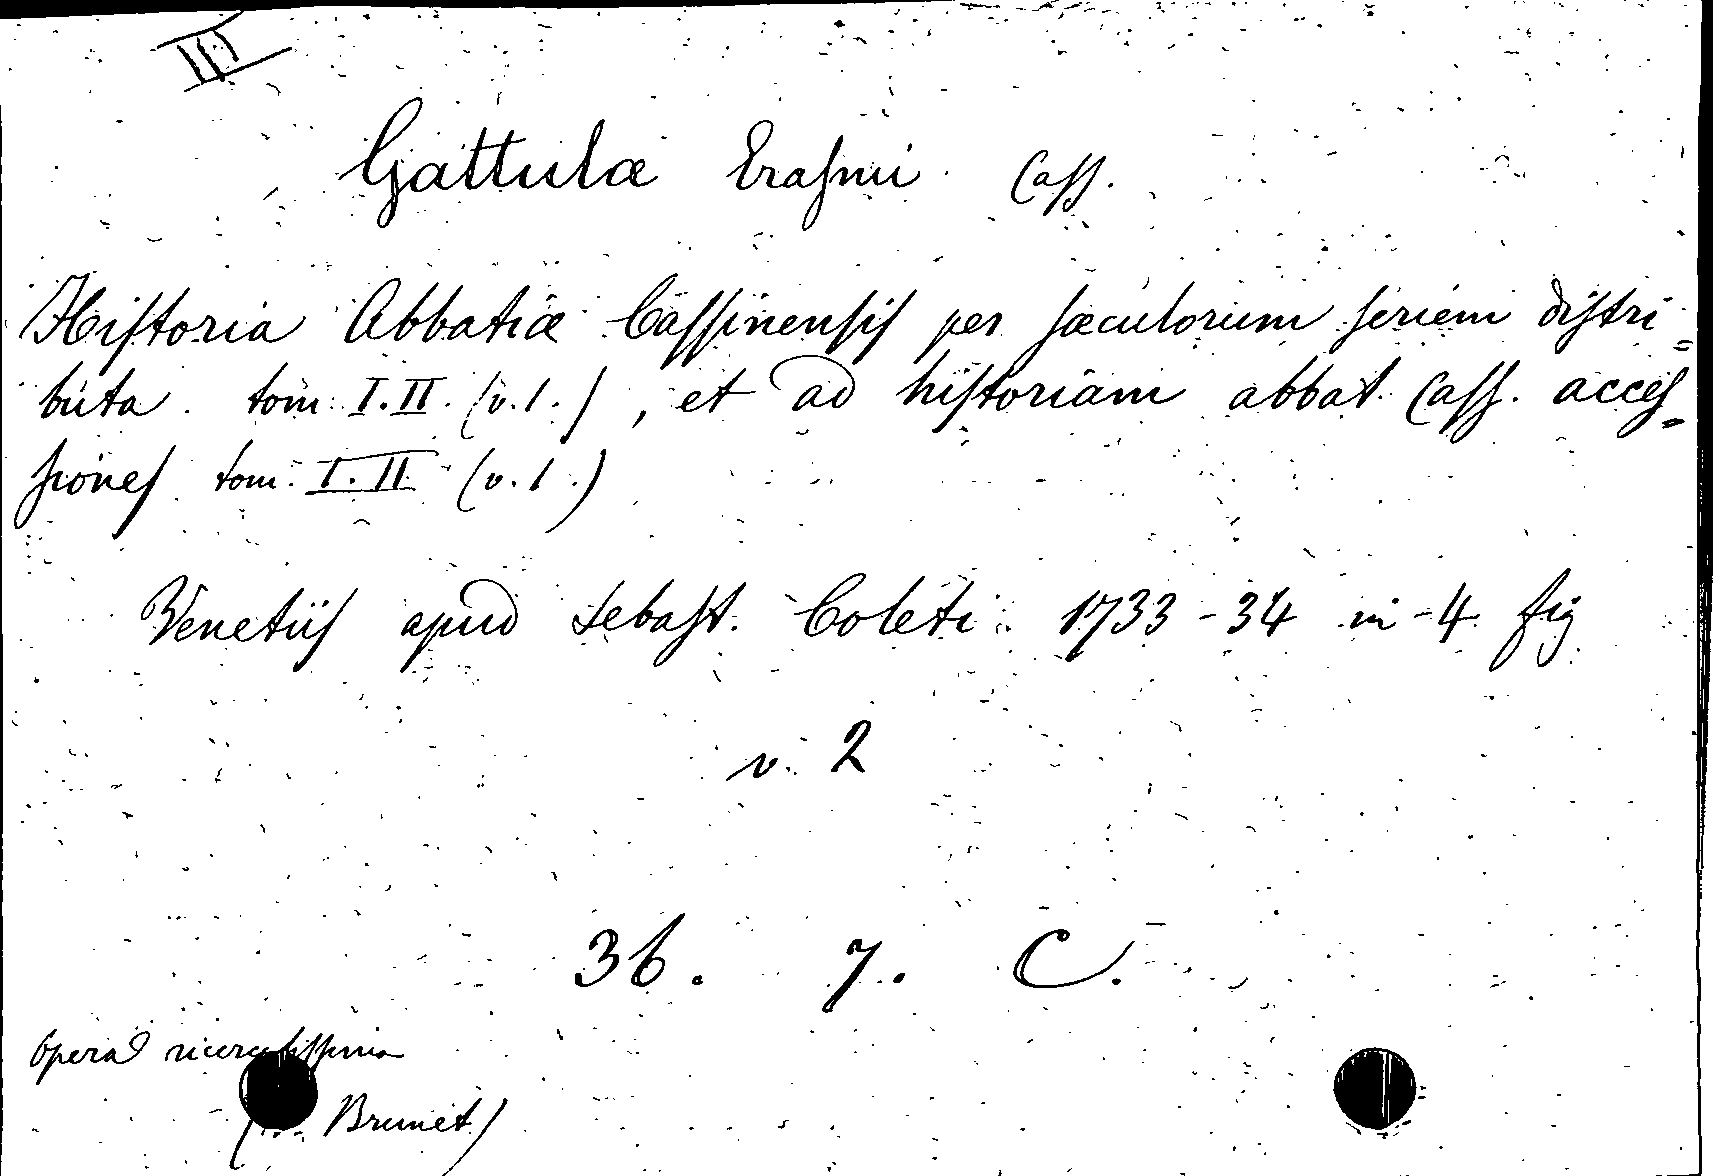 III
Gattulæ Erasmi Cass.
Historia Abbatiæ Cassinensis per sæculorum seriem distri=
buta. tom. I. II. (v. 1.), et ad historiam abbat. Cass. acces=
siones tom. I. II (v. 1.)
Venetiis apud Sebast. Coleti. 1733-34 in-4. fig.
v. 2
36. 7. C.
Opera ricercatissima
Brunet)